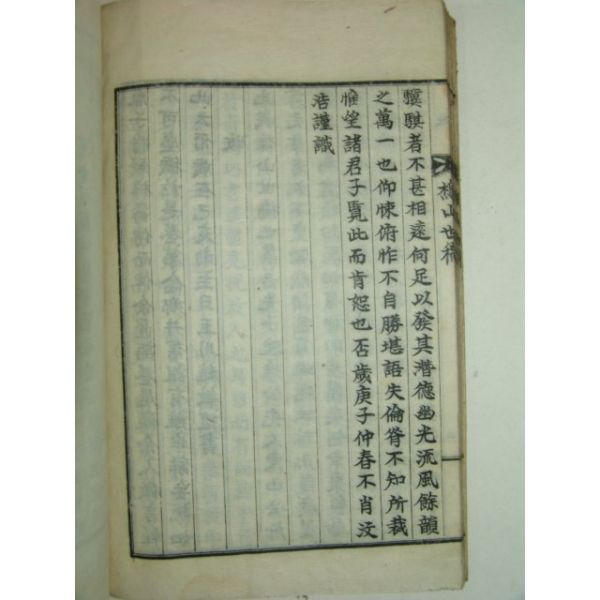 驥騏者不甚相遠何足以發其潛德幽光流風餘韻
之萬一也仰悚俯怍不自勝堪語失倫脊不知所裁
惟望諸君子覽此而肯恕也否歲庚子仲春不肖汶
浩謹識
山世稿